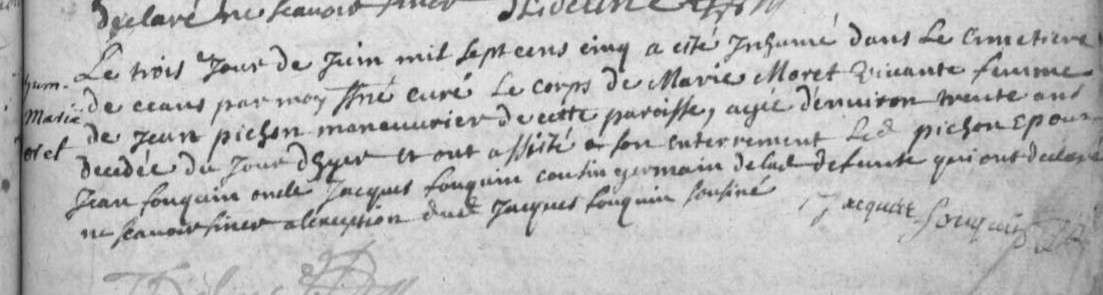 declaré ne scavoir siner
Le trois Jour de Juin mil sept cens cinq a esté Inhumé dans Le Cimetiere
hum. de ceans par moy curé Le corps de Marie Moret vivante femme
Marie de Jean pichon maneuvrier de cette paroisse, agée d'environ trente ans
oret decedée du Jour d'hyer et ont assisté a son enterrement Led pichon Epoux
Jean fouquin oncle Jacques fouquin cousin germain de lad defunte qui ont declaré
ne scavoir siner a lexception dud Jacques fouquin sousiné
Jacques fouquin